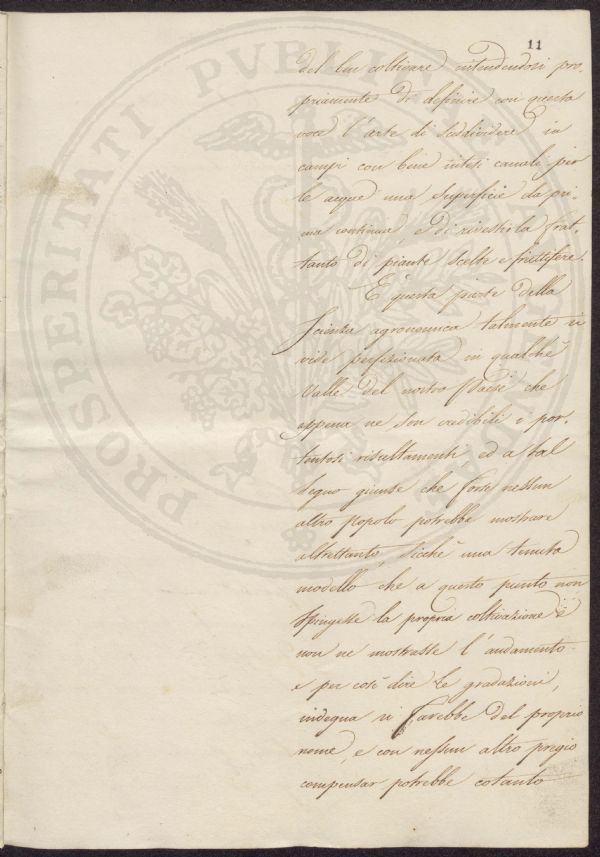 11
del ben coltivare intendendosi pro-
priamente di definire con questa
voce l'arte di suddividere in
campi con bene intesi canali per
le acque una superficie da pri-
ma continua, e di rivestirla frat-
tanto di piante scelte e fruttifere.
E questa parte della
Scienza agronomica talmente si
vide perfezionata in qualche
Valle del nostro Paese che
appena ne son credibili i por-
tentosi risultamenti ed a tal
segno giunse che forse nessun
altro popolo potrebbe mostrare
altrettanto, sicchè una tenuta
modello che a questo punto non
spingesse la propria coltivazione e
non ne mostrasse l'andamento
e per così dire le gradazioni,
indegna si farebbe del proprio
nome, e con nessun altro pregio
compensar potrebbe cotanto
PROSPERITATI PVBLICAE